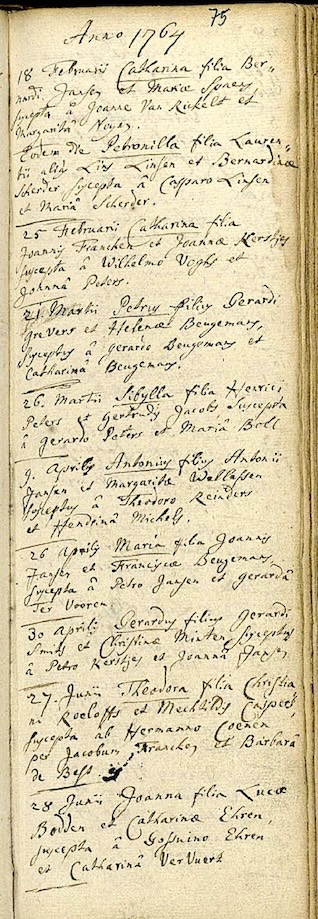 75
Anno 1764
18 Februarii Catharina filia Ber-
nardi Jansen et Mariæ Spaens
suscepta â Joanne Van Rickelt et
Margaritâ Noyen.
Eodem die Petronilla filia Lauren-
tii aliàs Lins Linsen et Bernardinæ
Scherder suscepta â Casparo Linsen
et Mariâ Scherder.
25 Februarii Catharina filia
Joannis Francken et Joannæ Kerstjes
suscepta â Wilhelmo Veghs et
Joannâ Peters.
21. Martii Petrus filius Gerardi
Grevers et Helenæ Beugemans,
susceptus â Gerardo Beugemans et
Catharinâ Beugemans.
26. Martii Sibylla filia Henrici
Peters et Gertrudis Jacobs suscepta
â Gerardo Peters et Mariâ Boll
9. Aprilis Antonius filius Antonii
Jansen et Margaritæ Wellassen
susceptus â Theodoro Reinders
et Hendrinâ Michels.
26 Aprilis Maria filia Joannis
Jansen et Franciscæ Beugemans
suscepta â Petro Jansen et Gerardâ
Ter Vooren.
30 Aprilis Gerardus filius Gerardi
Smits et Christinæ Minten susceptus
â Petro Kerstjes et Joannâ Jansen
27. Junii Theodora filia Christia-
ni Roeloffs et Mechtildis Caspers
suscepta ab Hermanno Coenen
per Jacobum Francken et Barbarâ
de Best
28 Junii Joanna filia Lucæ
Boiden et Catharinæ Ehren,
suscepta â Gossuino Ehren
et Catharinâ VerVuert